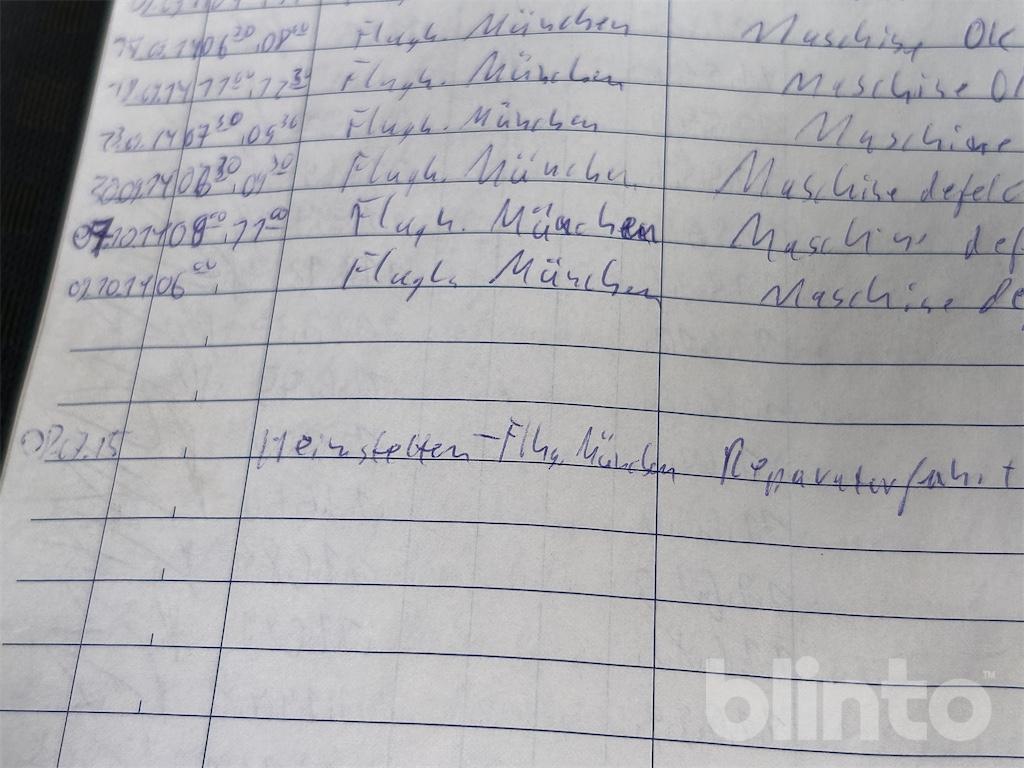 06³⁰ 08⁰⁰ Flugh. München Maschine OK
11⁰⁰ 12³⁰ Flugh. München Maschine
07³⁰ 09³⁰ Flugh. München Maschine
30.09.14 08³⁰ 09³⁰ Flugh. München Maschine defek
07.10.14 08⁰⁰ 11⁰⁰ Flugh. München Maschine def
02.10.14 06⁰⁰ Flugh. München Maschine de
07.15 Heimstetten - Flhg. München Reparaturfahrt
blinto™